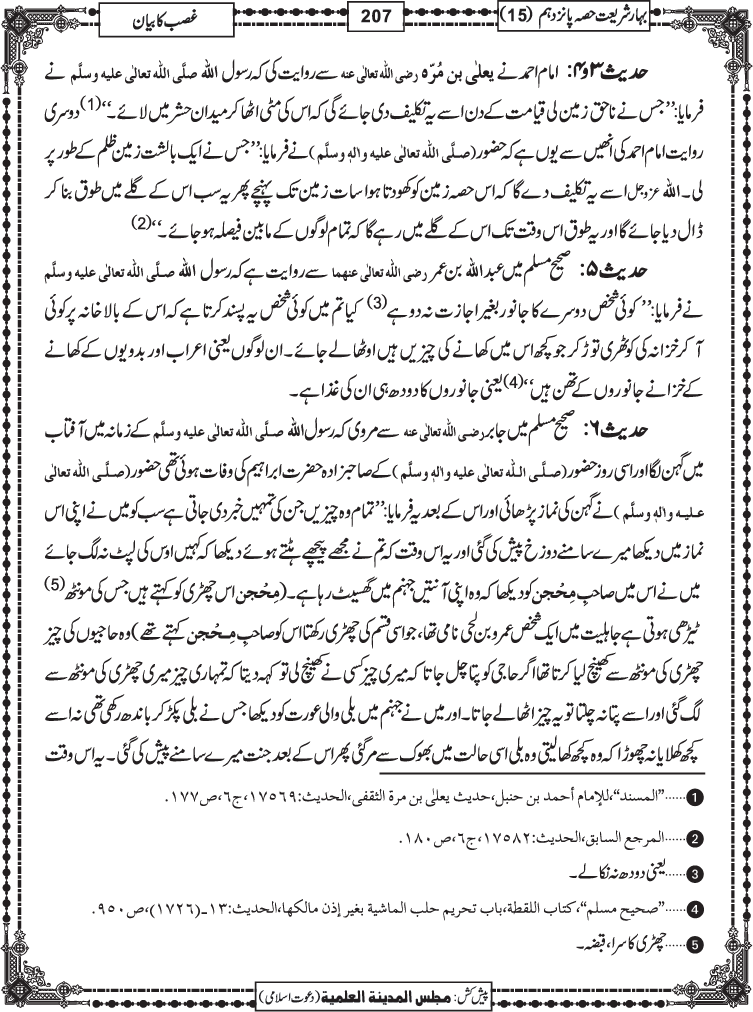 بہار شریعت حصہ پانزدہم (15)
207
غصب کا بیان
حدیث ۳و۴: امام احمد نے یعلٰی بن مُرّہ رضی اللہ تعالٰی عنہ سے روایت کی کہ رسول اللہ صلَّی اللہ تعالٰی علیہ وسلَّم نے
فرمایا:’’جس نے ناحق زمین لی قیامت کے دن اسے یہ تکلیف دی جائے گی کہ اس کی مٹی اٹھا کر میدان حشر میں لائے۔‘‘(1) دوسری
روایت امام احمد کی انھیں سے یوں ہے کہ حضور (صلَّی اللہ تعالٰی علیہ واٰلہٖ وسلَّم) نے فرمایا:’’جس نے ایک بالشت زمین ظلم کے طور پر
لی۔ اللہ عزوجل اسے یہ تکلیف دے گا کہ اس حصہ زمین کو کھودتا ہوا سات زمین تک پہنچے پھر یہ سب اس کے گلے میں طوق بنا کر
ڈال دیا جائے گا اور یہ طوق اس وقت تک اس کے گلے میں رہے گا کہ تمام لوگوں کے مابین فیصلہ ہوجائے۔‘‘(2)
حدیث ۵: صحیح مسلم میں عبداللہ بن عمر رضی اللہ تعالٰی عنھما سے روایت ہے کہ رسول اللہ صلَّی اللہ تعالٰی علیہ وسلَّم
نے فرمایا:’’کوئی شخص دوسرے کا جانور بغیر اجازت نہ دوہے(3) کیا تم میں کوئی شخص یہ پسند کرتا ہے کہ اس کے بالا خانہ پر کوئی
آکر خزانہ کی کوٹھری توڑ کر جو کچھ اس میں کھانے کی چیزیں ہیں اوٹھالے جائے۔ ان لوگوں یعنی اعراب اور بدویوں کے کھانے
کے خزانے جانوروں کے تھن ہیں‘‘(4) یعنی جانوروں کا دودھ ہی ان کی غذا ہے۔
حدیث ۶: صحیح مسلم میں جابر رضی اللہ تعالٰی عنہ سے مروی کہ رسول اللہ صلَّی اللہ تعالٰی علیہ وسلَّم کے زمانہ میں آفتاب
میں گہن لگا اور اسی روز حضور (صلَّی اللہ تعالٰی علیہ واٰلہٖ وسلَّم) کے صاحبزادہ حضرت ابراہیم کی وفات ہوئی تھی حضور (صلَّی اللہ تعالٰی
علیہ واٰلہٖ وسلَّم) نے گہن کی نماز پڑھائی اور اس کے بعد یہ فرمایا:’’تمام وہ چیزیں جن کی تمہیں خبر دی جاتی ہے سب کو میں نے اپنی اس
نماز میں دیکھا میرے سامنے دوزخ پیش کی گئی اور یہ اس وقت کہ تم نے مجھے پیچھے ہٹتے ہوئے دیکھا کہ کہیں اوس کی لپٹ نہ لگ جائے
میں نے اس میں صاحبِ مِحْجن کو دیکھا کہ وہ اپنی آنتیں جہنم میں گھسیٹ رہا ہے۔ (مِحْجن اس چھڑی کو کہتے ہیں جس کی مونٹھ(5)
ٹیڑھی ہوتی ہے جاہلیت میں ایک شخص عمرو بن لُحَی نامی تھا، جو اسی قسم کی چھڑی رکھتا اس کو صاحبِ مِحْجن کہتے تھے) وہ حاجیوں کی چیز
چھڑی کی مونٹھ سے کھینچ لیا کرتا تھا اگر حاجی کو پتا چل جاتا کہ میری چیز کسی نے کھینچ لی تو کہہ دیتا کہ تمہاری چیز میری چھڑی کی مونٹھ سے
لگ گئی اور اسے پتا نہ چلتا تو یہ چیز اٹھا لے جاتا۔ اور میں نے جہنم میں بلی والی عورت کو دیکھا جس نے بلی پکڑ کر باندھ رکھی تھی نہ اسے
کچھ کھلایا نہ چھوڑا کہ وہ کچھ کھالیتی وہ بلی اسی حالت میں بھوک سے مرگئی پھر اس کے بعد جنت میرے سامنے پیش کی گئی۔ یہ اس وقت
1 ......”المسند“،للإمام أحمد بن حنبل،حدیث یعلٰی بن مرة الثقفی،الحدیث:١٧٥٦٩،ج٦،ص١٧٧.
2 ......المرجع السابق،الحدیث:١٧٥٨٢،ج٦،ص١٨٠.
3 ......یعنی دودھ نہ نکالے۔
4 ......”صحیح مسلم“،کتاب اللقطة،باب تحریم حلب الماشیة بغیر إذن مالکها،الحدیث:١٣-(١٧٢٦)،ص٩٥٠.
5 ......چھڑی کا سرا، قبضہ۔
پیش کش: مجلس المدینة العلمیة (دعوت اسلامی)